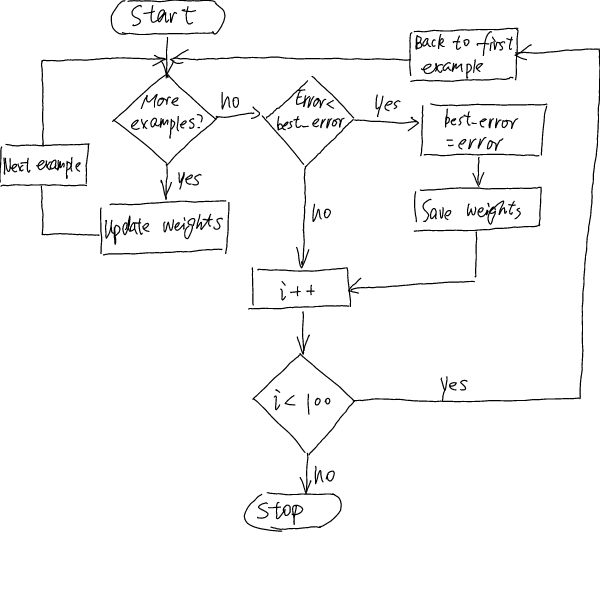 Start
Back to first
example
More
examples?
no
Error<
best_error
Yes
best_error
=error
Next example
yes
Update weights
Save weights
no
i++
i<100
Yes
no
Stop